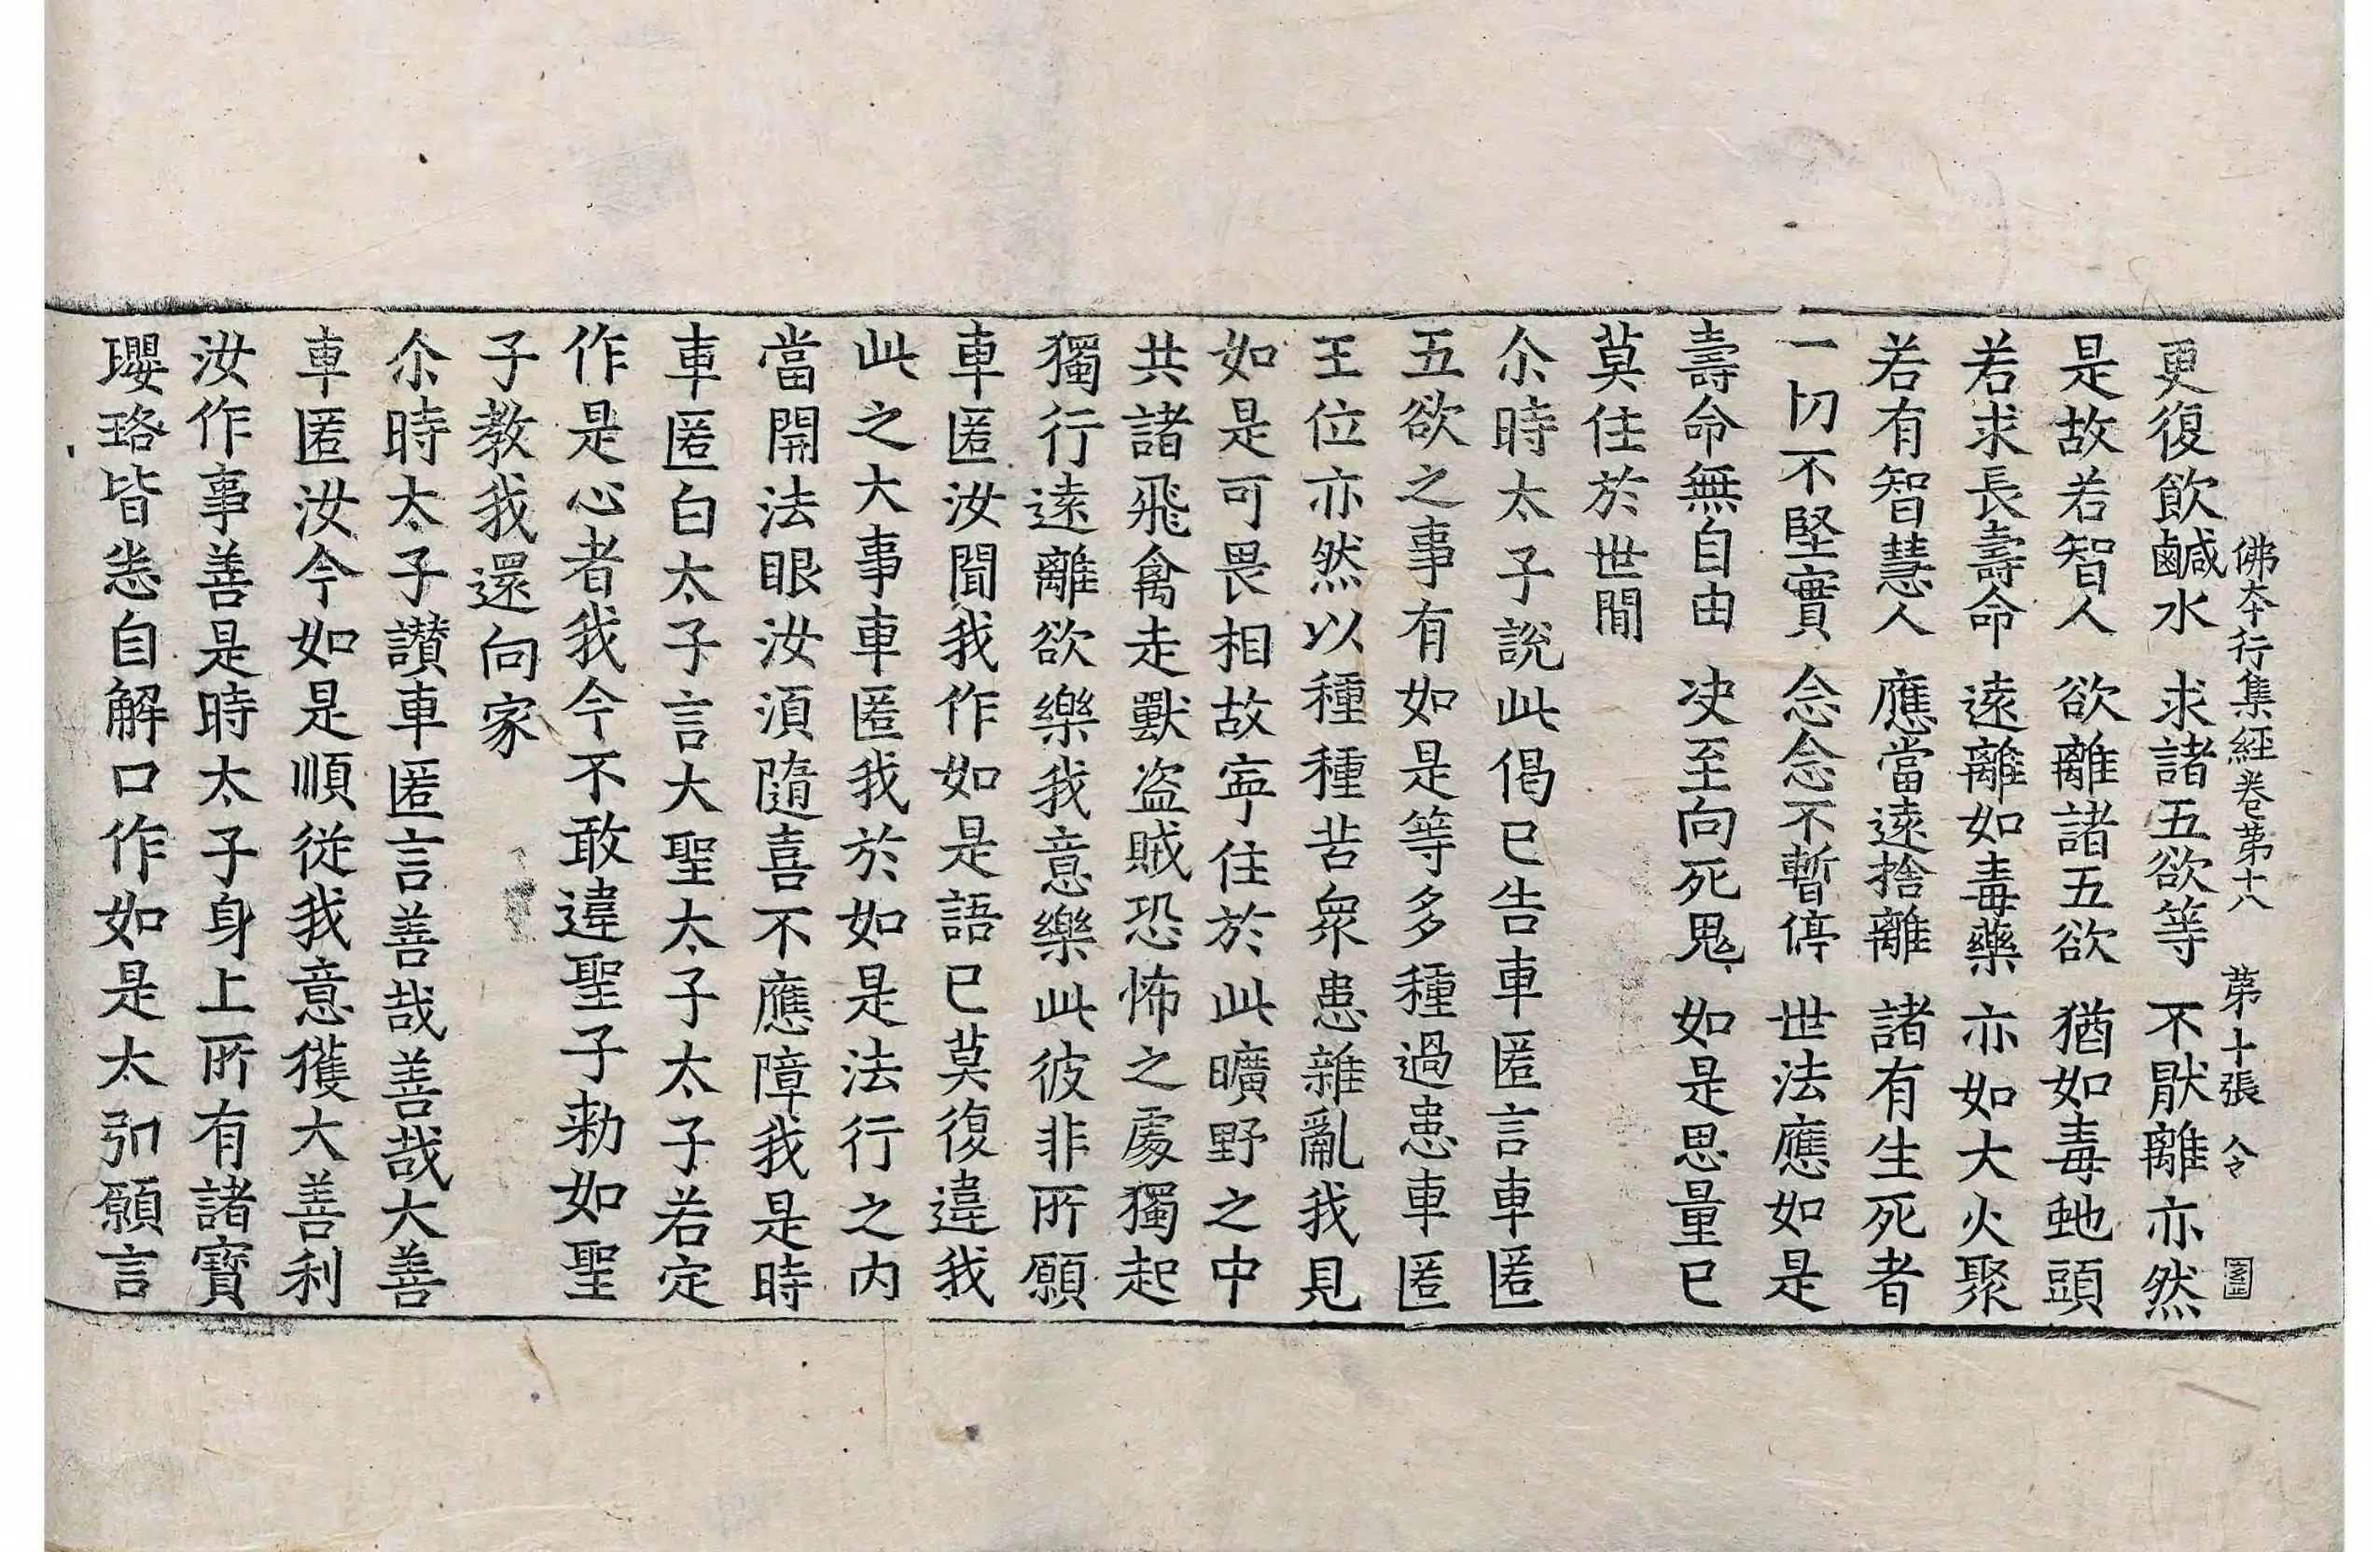 佛夲行集経卷苐十八 苐十張 令
更復飲鹹水 求諸五欲等 不猒離亦然
是故若智人 欲離諸五欲 猶如毒虵頭
若求長壽命 遠離如毒藥 亦如大火聚
若有智慧人 應當遠捨離 諸有生死者
一切不堅實 念念不暫停 世法應如是
壽命無自由 决至向死鬼 如是思量已
莫住於世閒
尒時太子說此偈已告車匿言車匿
五欲之事有如是等多種過患車匿
王位亦然以種種苦衆患雜亂我見
如是可畏相故寧住於此曠野之中
共諸飛禽走獸盗賊恐怖之處獨起
獨行遠離欲樂我意樂此彼非所願
車匿汝聞我作如是語已莫復違我
此之大事車匿我於如是法行之内
當開法眼汝湏隨喜不應障我是時
車匿白太子言大聖太子太子若定
作是心者我今不敢違聖子勑如聖
子教我還向家
尒時太子讃車匿言善哉善哉大善
車匿汝今如是順從我意獲大善利
汝作事善是時太子身上所有諸寶
瓔珞皆悉自解口作如是太引願言